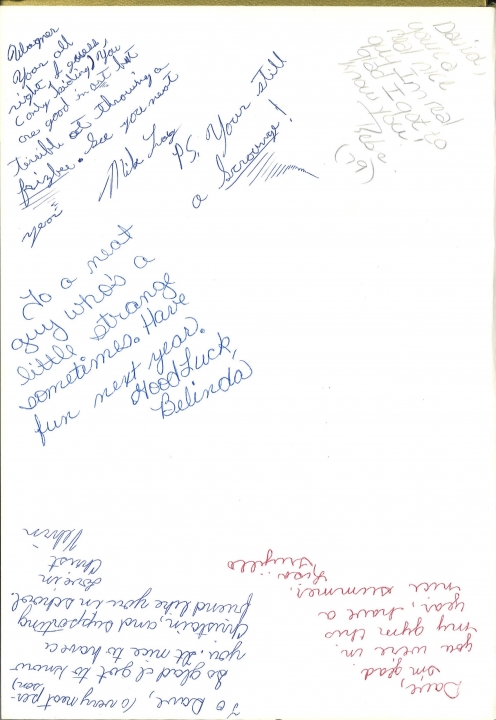 Wagner
Your all
right I guess
(only kidding) You
are good in art but
terrible at throwing a
frizbee. See you next
year
Mik
P.S. Your still
a Scrounge!
David,
you're
guy I'm real
glad I got to
know you.
To a neat
guy who's a
little strange
sometimes. Have
fun next year.
Good Luck,
Belinda
To Dave, (a very neat per-
son)
So glad I got to know
you. It nice to have a
Christain, and supporting
friend like you in school
Love in
Christ
Dave,
I'm glad
you were in
my gym this
year, have a
nice summer.
Lisa
Trujillo